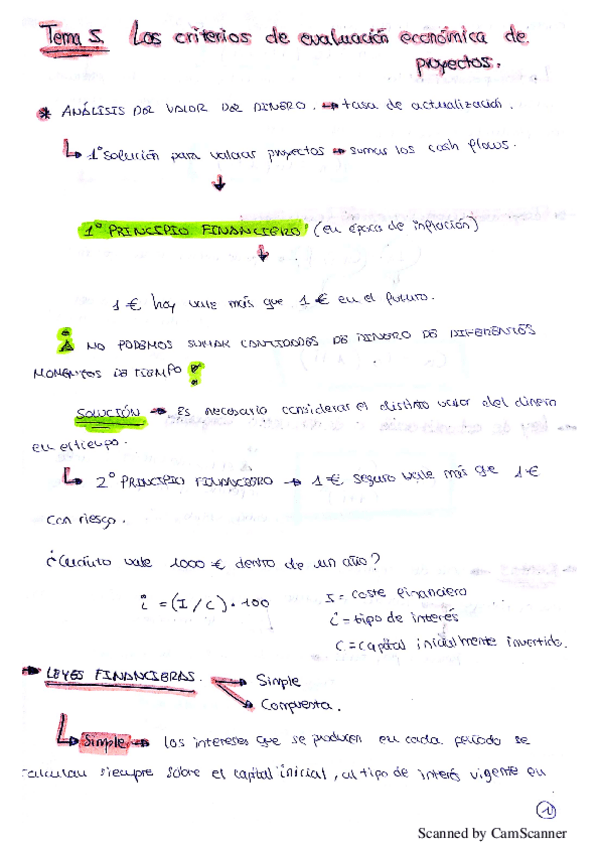 Tema 5. Los criterios de evaluación económica de
proyectos.
* ANÁLISIS DEL VALOR DEL DINERO. → tasa de actualización.
↳ 1ª solución para valorar proyectos → sumar los cash flows.
↓
1º PRINCIPIO FINANCIERO (en época de inflación)
↓
1 € hoy vale más que 1 € en el futuro.
¡ NO PODEMOS SUMAR CANTIDADES DE DINERO DE DIFERENTES
MOMENTOS DE TIEMPO !
SOLUCIÓN → Es necesario considerar el distinto valor del dinero
en el tiempo.
↳ 2º PRINCIPIO FINANCIERO → 1 € seguro vale más que 1 €
con riesgo.
¿Cuánto vale 1000 € dentro de un año?
i = (I / C) · 100
I = coste financiero
i = tipo de interés
C = capital inicialmente invertido.
→ LEYES FINANCIERAS. → Simple
→ Compuesta.
↳ Simple → los intereses que se producen en cada período se
calculan siempre sobre el capital inicial, al tipo de interés vigente en
1
Scanned by CamScanner